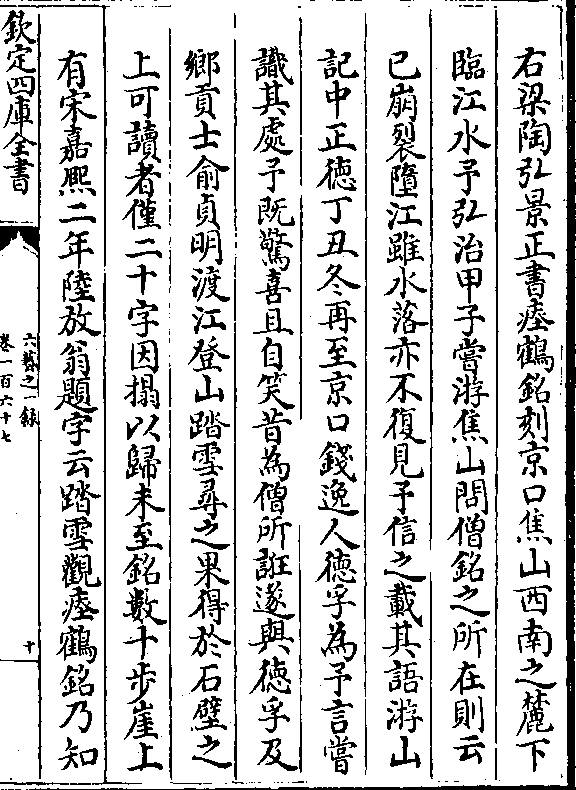 右梁陶弘景正書瘞鶴銘刻京口焦山西南之麓下
臨江水予弘治甲子嘗游焦山問僧銘之所在則云
已崩裂墮江雖水落亦不復見予信之載其語游山
記中正徳丁丑冬再至京口錢逸人徳孚為予言嘗
識其處予既驚喜且自笑昔為僧所誑遂與徳孚及
鄉貢士俞貞明渡江登山踏雪尋之果得於石壁之
上可讀者僅二十字因搨以歸未至銘數十步崖上
有宋嘉熈二年陸放翁題字云踏雪觀瘞鶴銘乃知
欽定四庫全書
六藝之一録
卷一百六十七
十